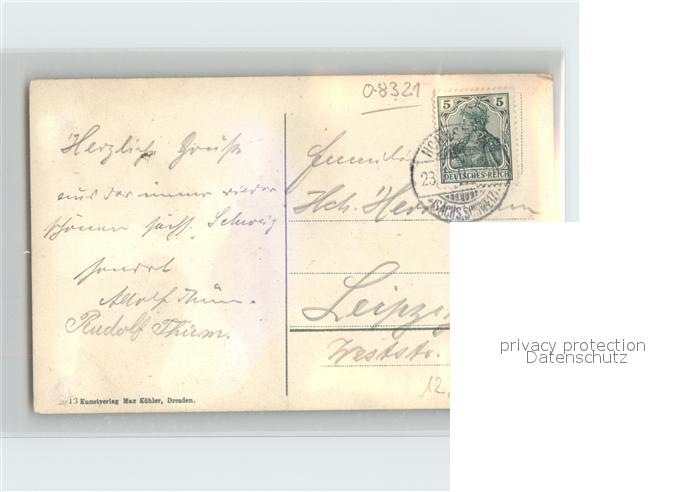 0-8321
Herzliche Grüße
aus der immer wieder
schönen sächs. Schweiz
sendet
Adolf Thüm.
Rudolf Thüm.
Familie
Hch.
Leipzig
Weststr.
12.
5 5
DEUTSCHES-REICH
23.
(SÄCHS. SCHWEIZ)
13 Kunstverlag Max Köhler, Dresden.
privacy protection
Datenschutz